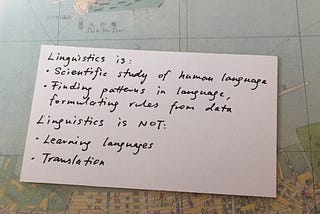 Linguistics is:
• Scientific study of human language
• Finding patterns in language,
formulating rules from data
Linguistics is NOT:
• Learning languages
• Translation